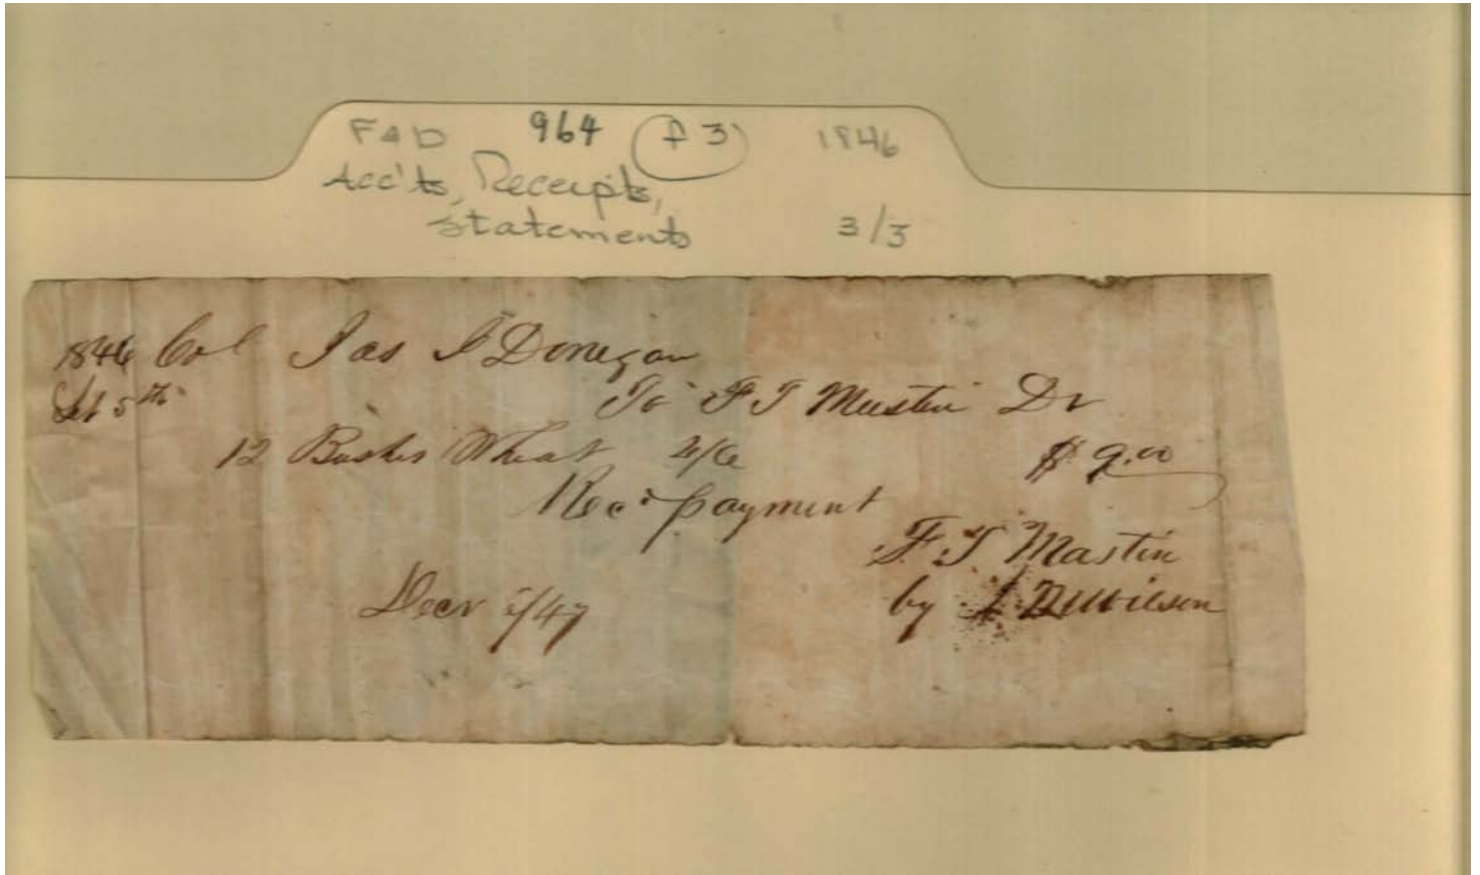 F&D 964 (f 3) 1846
Acc'ts, Receipts,
Statements 3/3
1846 Col Jas J Donegan
Set 5th To F T Mastin Dr
12 Bushs Wheat 4/6 $9.00
Recd payment
F. T. Mastin
by Wilson
Decr /47